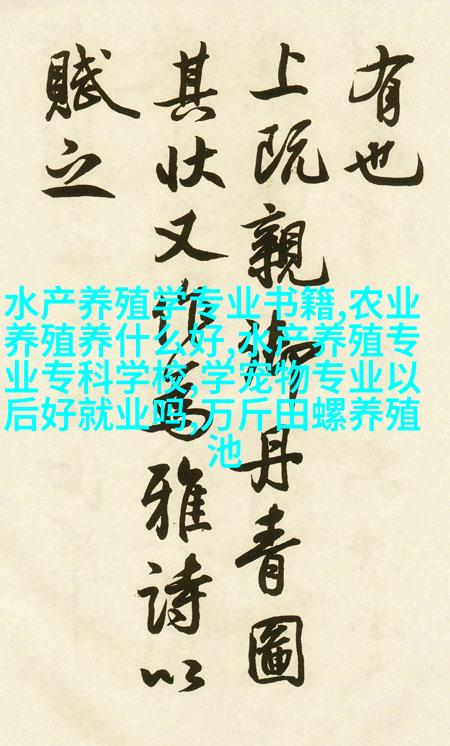 有也
上既親御丹青圖
其状又為雅詩以
賦之
水产养殖学专业书籍,农业
养殖养什么好,水产养殖专
业专科学校,学宠物专业以
后好就业吗,万斤田螺养殖
池